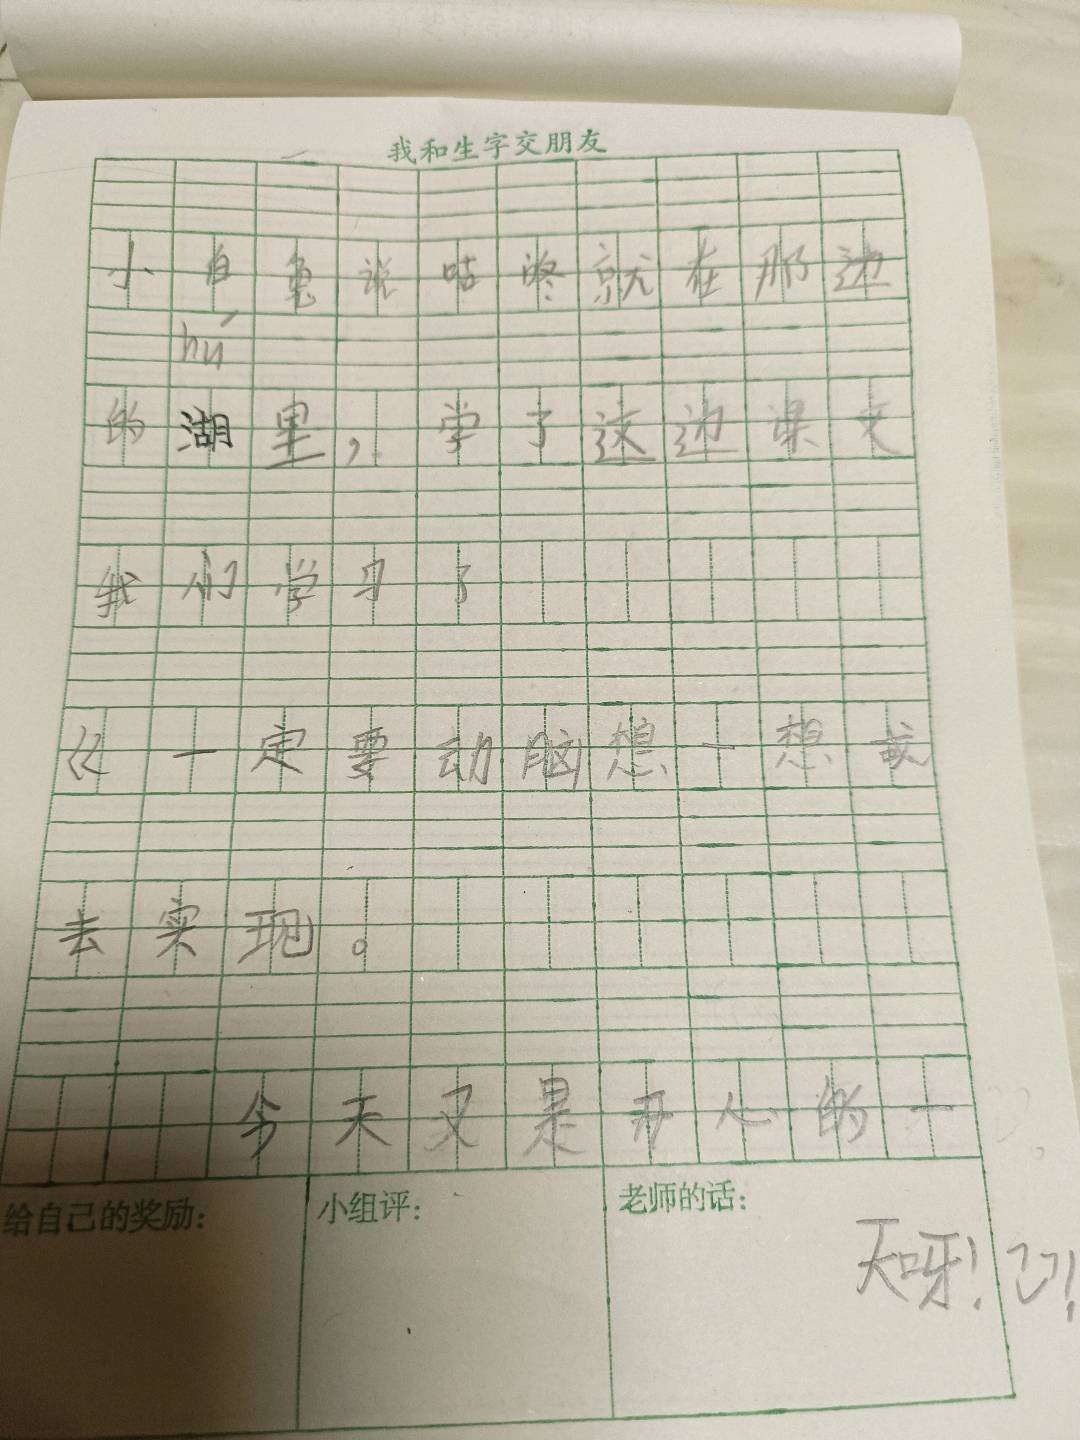 我和生字交朋友
小白兔说咕咚就在那边
hú
的湖里，学了这边课文
我们学习了
《一定要动脑想一想或
去实现。
今天又是开心的一
给自己的奖励：
小组评：
老师的话：
天呀！